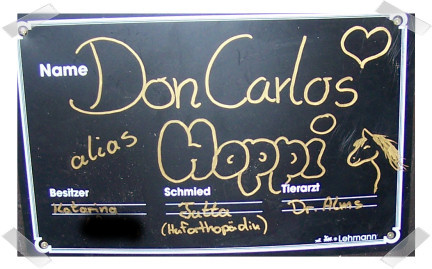 Name Don Carlos
alias Hoppi
Besitzer Schmied Tierarzt
Katarina Jutta Dr. Alms
(Huforthopädin)
Lehmann